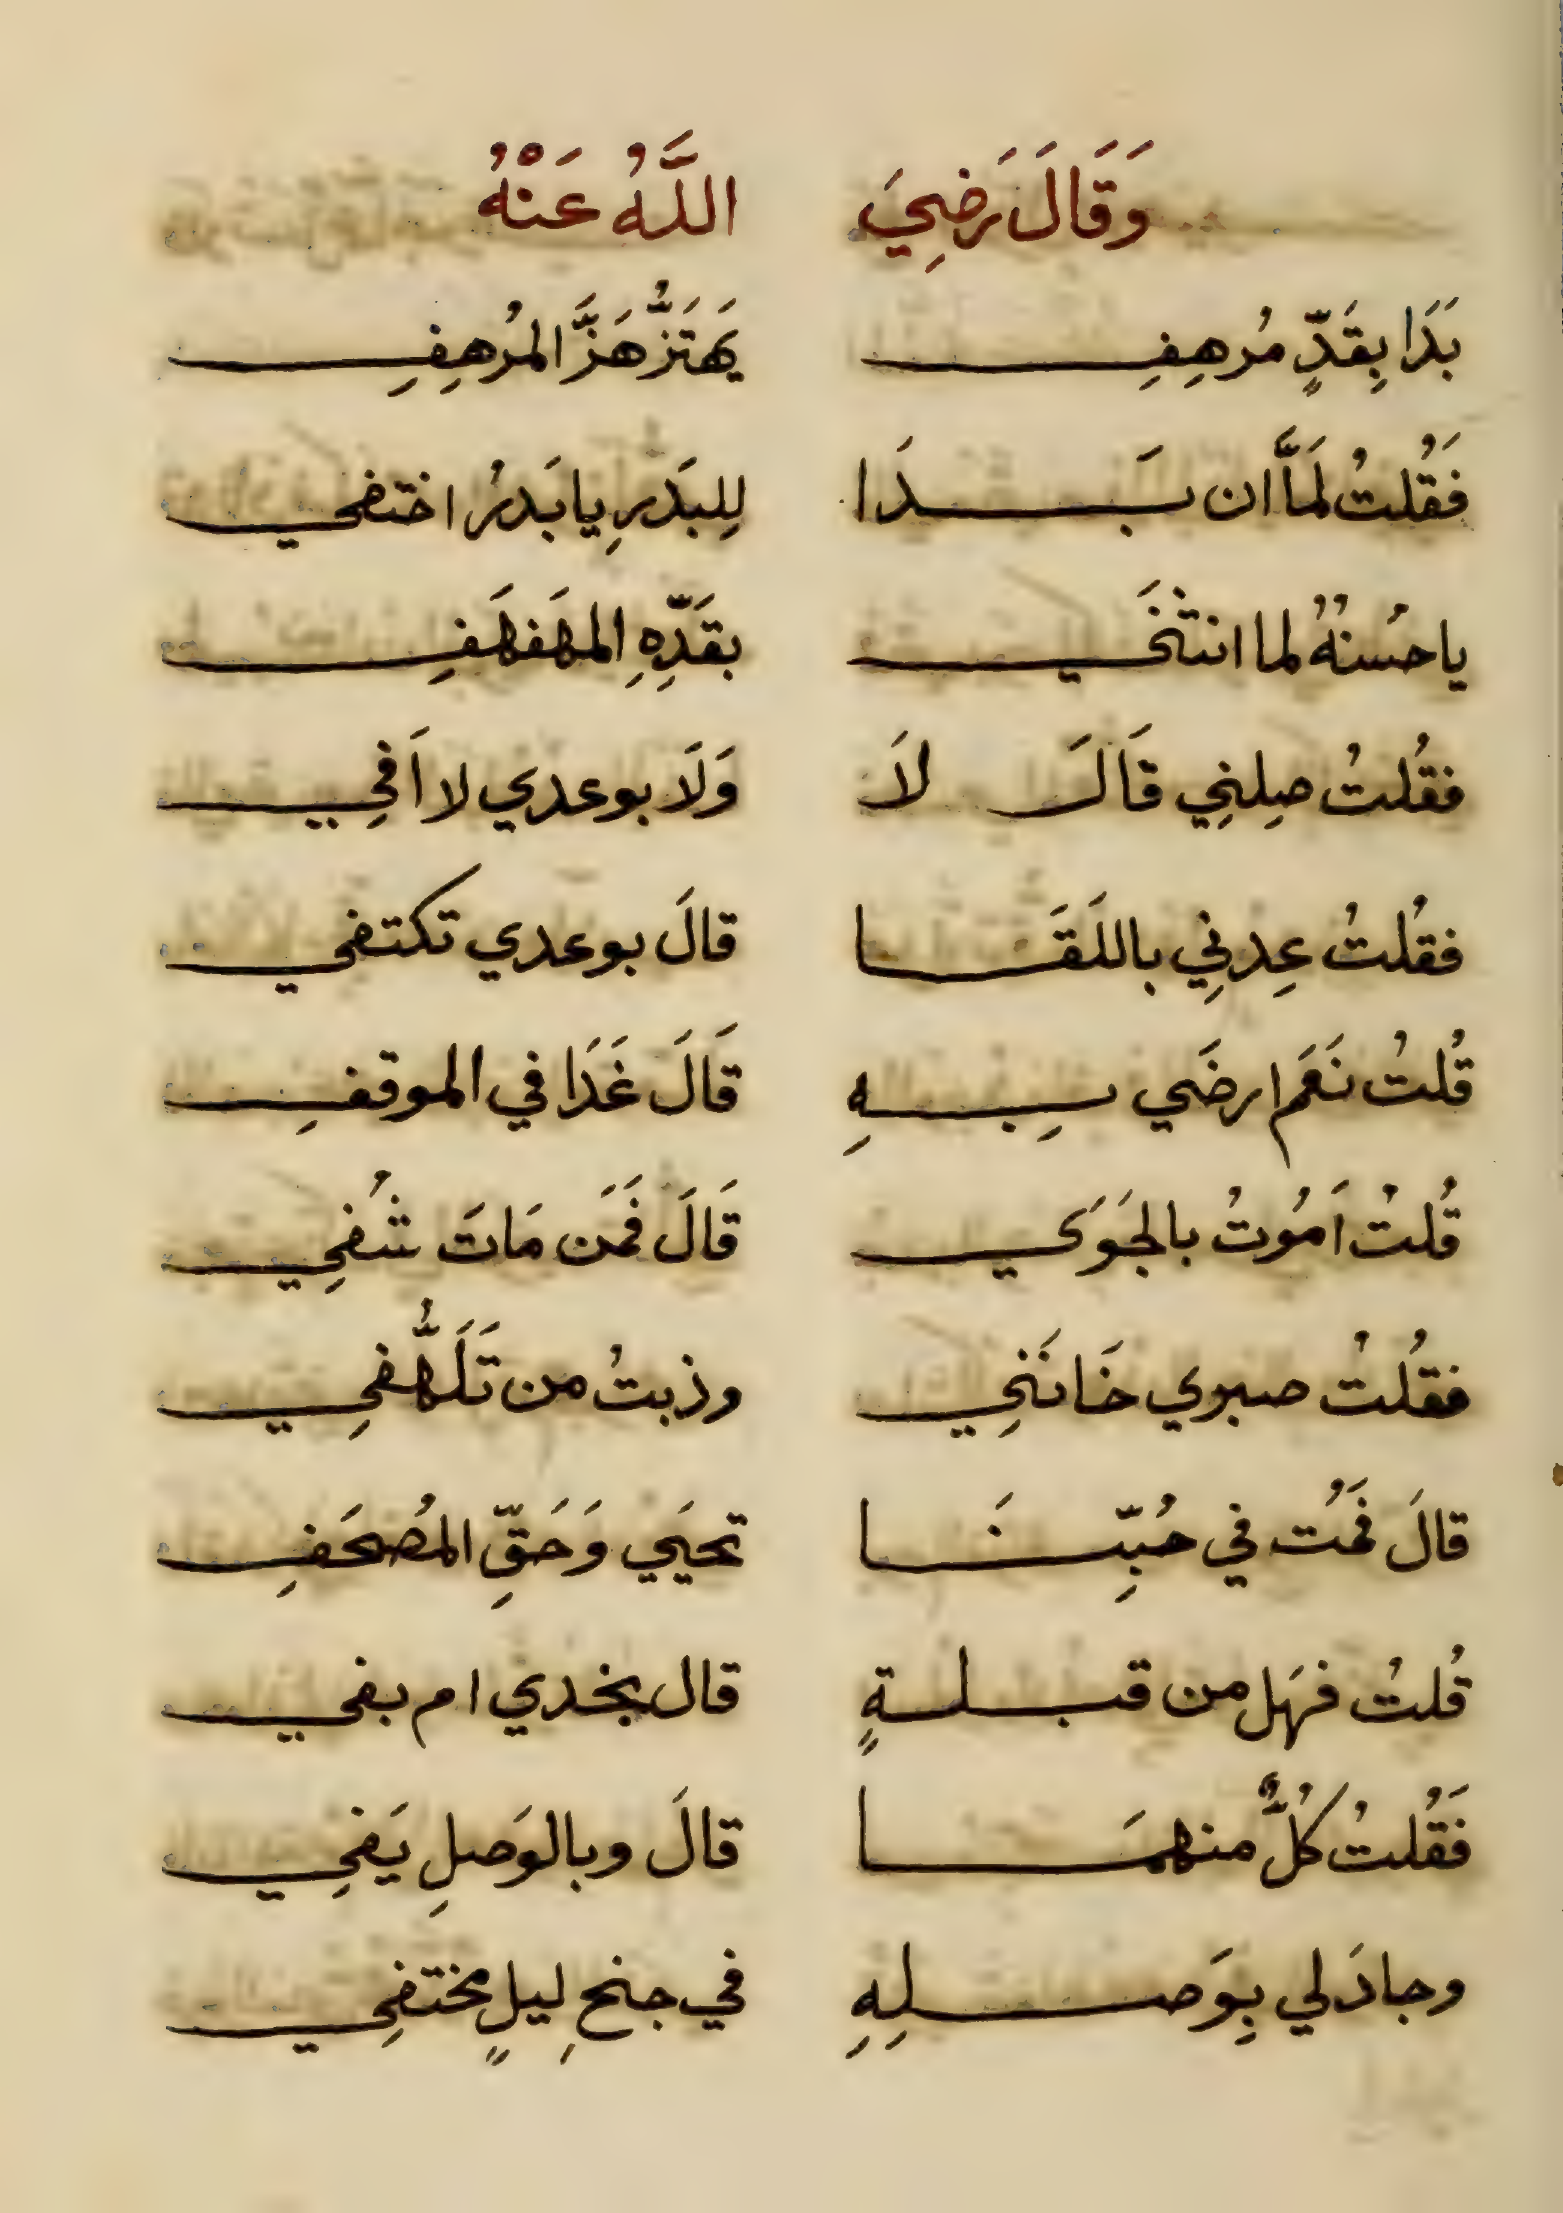 وَقَالَ رَضِيَ اللَّهُ عَنْهُ
بَدَا بِقَدٍّ مُرهِفِ يَهتَزُّ هَزَّ المُرهِفِ
فَقُلتُ لَمَّا ان بَدَا لِلبَدرِ يا بَدرُ اختفي
يا حُسنهُ لما انثنَي بقَدِّهِ المهَفهَفِ
فقُلتُ صِلنِي قَالَ لاَ وَلَا بوعدي لا اَفِي
فقُلتُ عِدنِي باللَقَا قالَ بوعدي تكتفي
قُلتُ نَعَم ارضَي بِهِ قَالَ غَدَا في الموقفِ
قُلتُ اَمُوتُ بالجَوَي قَالَ فَمَن مَاتَ شُفِي
فقُلتُ صبري خَانَنِي وذبتُ من تَلَهُّفِي
قالَ فَمُت في حُبِّنَا تحيَي وَحَقِّ المُصحَفِ
قُلتُ فهَل من قبلةٍ قال بخدي ام بفي
فَقُلتُ كُلٌّ منهمَا قالَ وبالوَصلِ يَفِي
وجادَ لي بِوَصلِهِ في جنحِ ليلٍ مختفِي